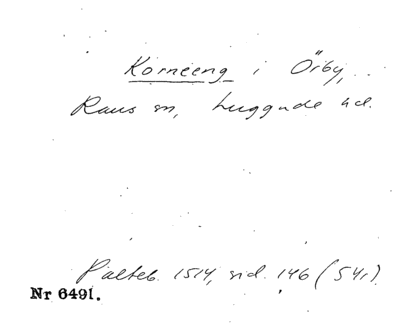 Korneeng i Örby,
Raus sn, Luggude hd.
Pälteb. 1514, sid. 146 (54r).
Nr 6491.